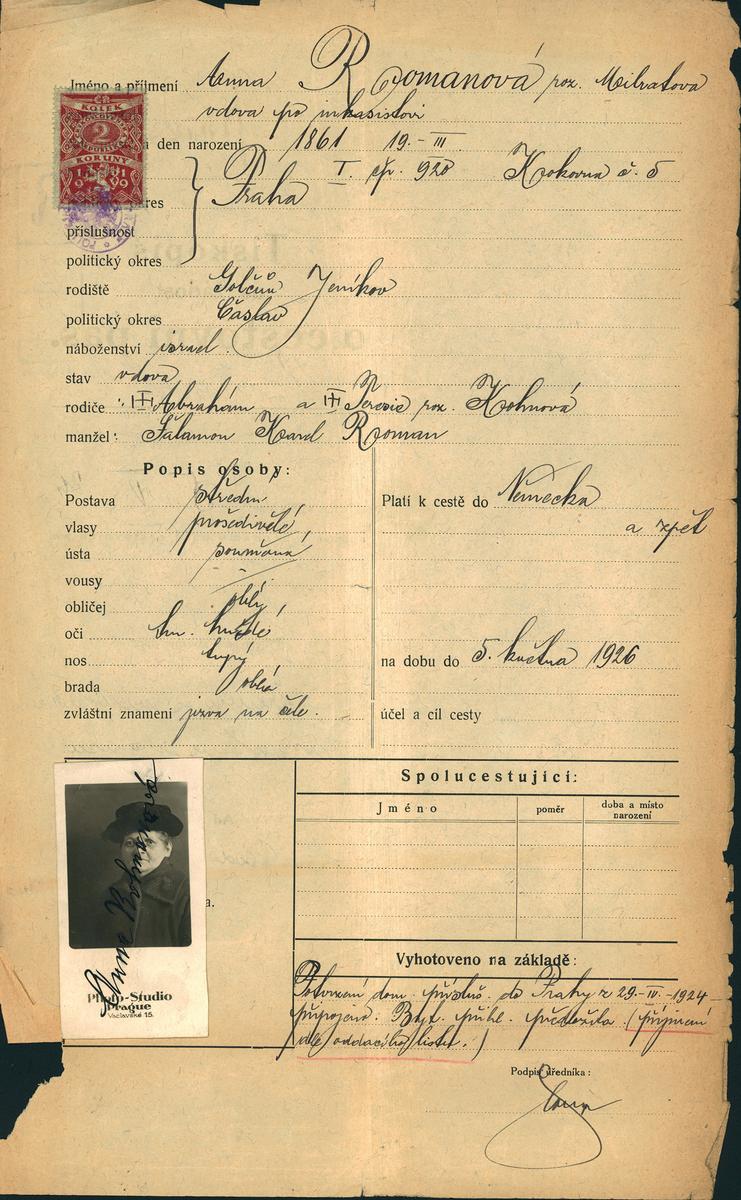 Jméno a příjmení Anna Romanová roz.
vdova po inkasistovi
ČR
KOLEK
2
KORUNY
1919
a den narození 1861 19.-III.
I. čp. 920 Kokovna č. 5
okres Praha
příslušnost
politický okres
rodiště Golčův Jeníkov
politický okres Čáslav
náboženství israel.
stav vdova
rodiče: Abrahám a Teresie roz. Kohnová
manžel: Šalamon Karel Roman
Popis osoby:
Postava střední
vlasy prošedivělé
ústa souměrná
vousy -
obličej oblý
oči tm. hnědé
nos tupý
brada oblá
zvláštní znamení jizva na čele.
Platí k cestě do Německa
a zpět
na dobu do 5. května 1926
účel a cíl cesty
Anna Romanová
Photo-Studio
Prague
Václavské 15.
a.
Spolucestující:
Jméno poměr doba a místo
narození
Vyhotoveno na základě:
Potvrzení dom. přísluš. do Prahy z 29.-IV.-1924
připojeno. Byt. přihl. předložila. (příjmení
dle oddacího listu.)
Podpis úředníka: